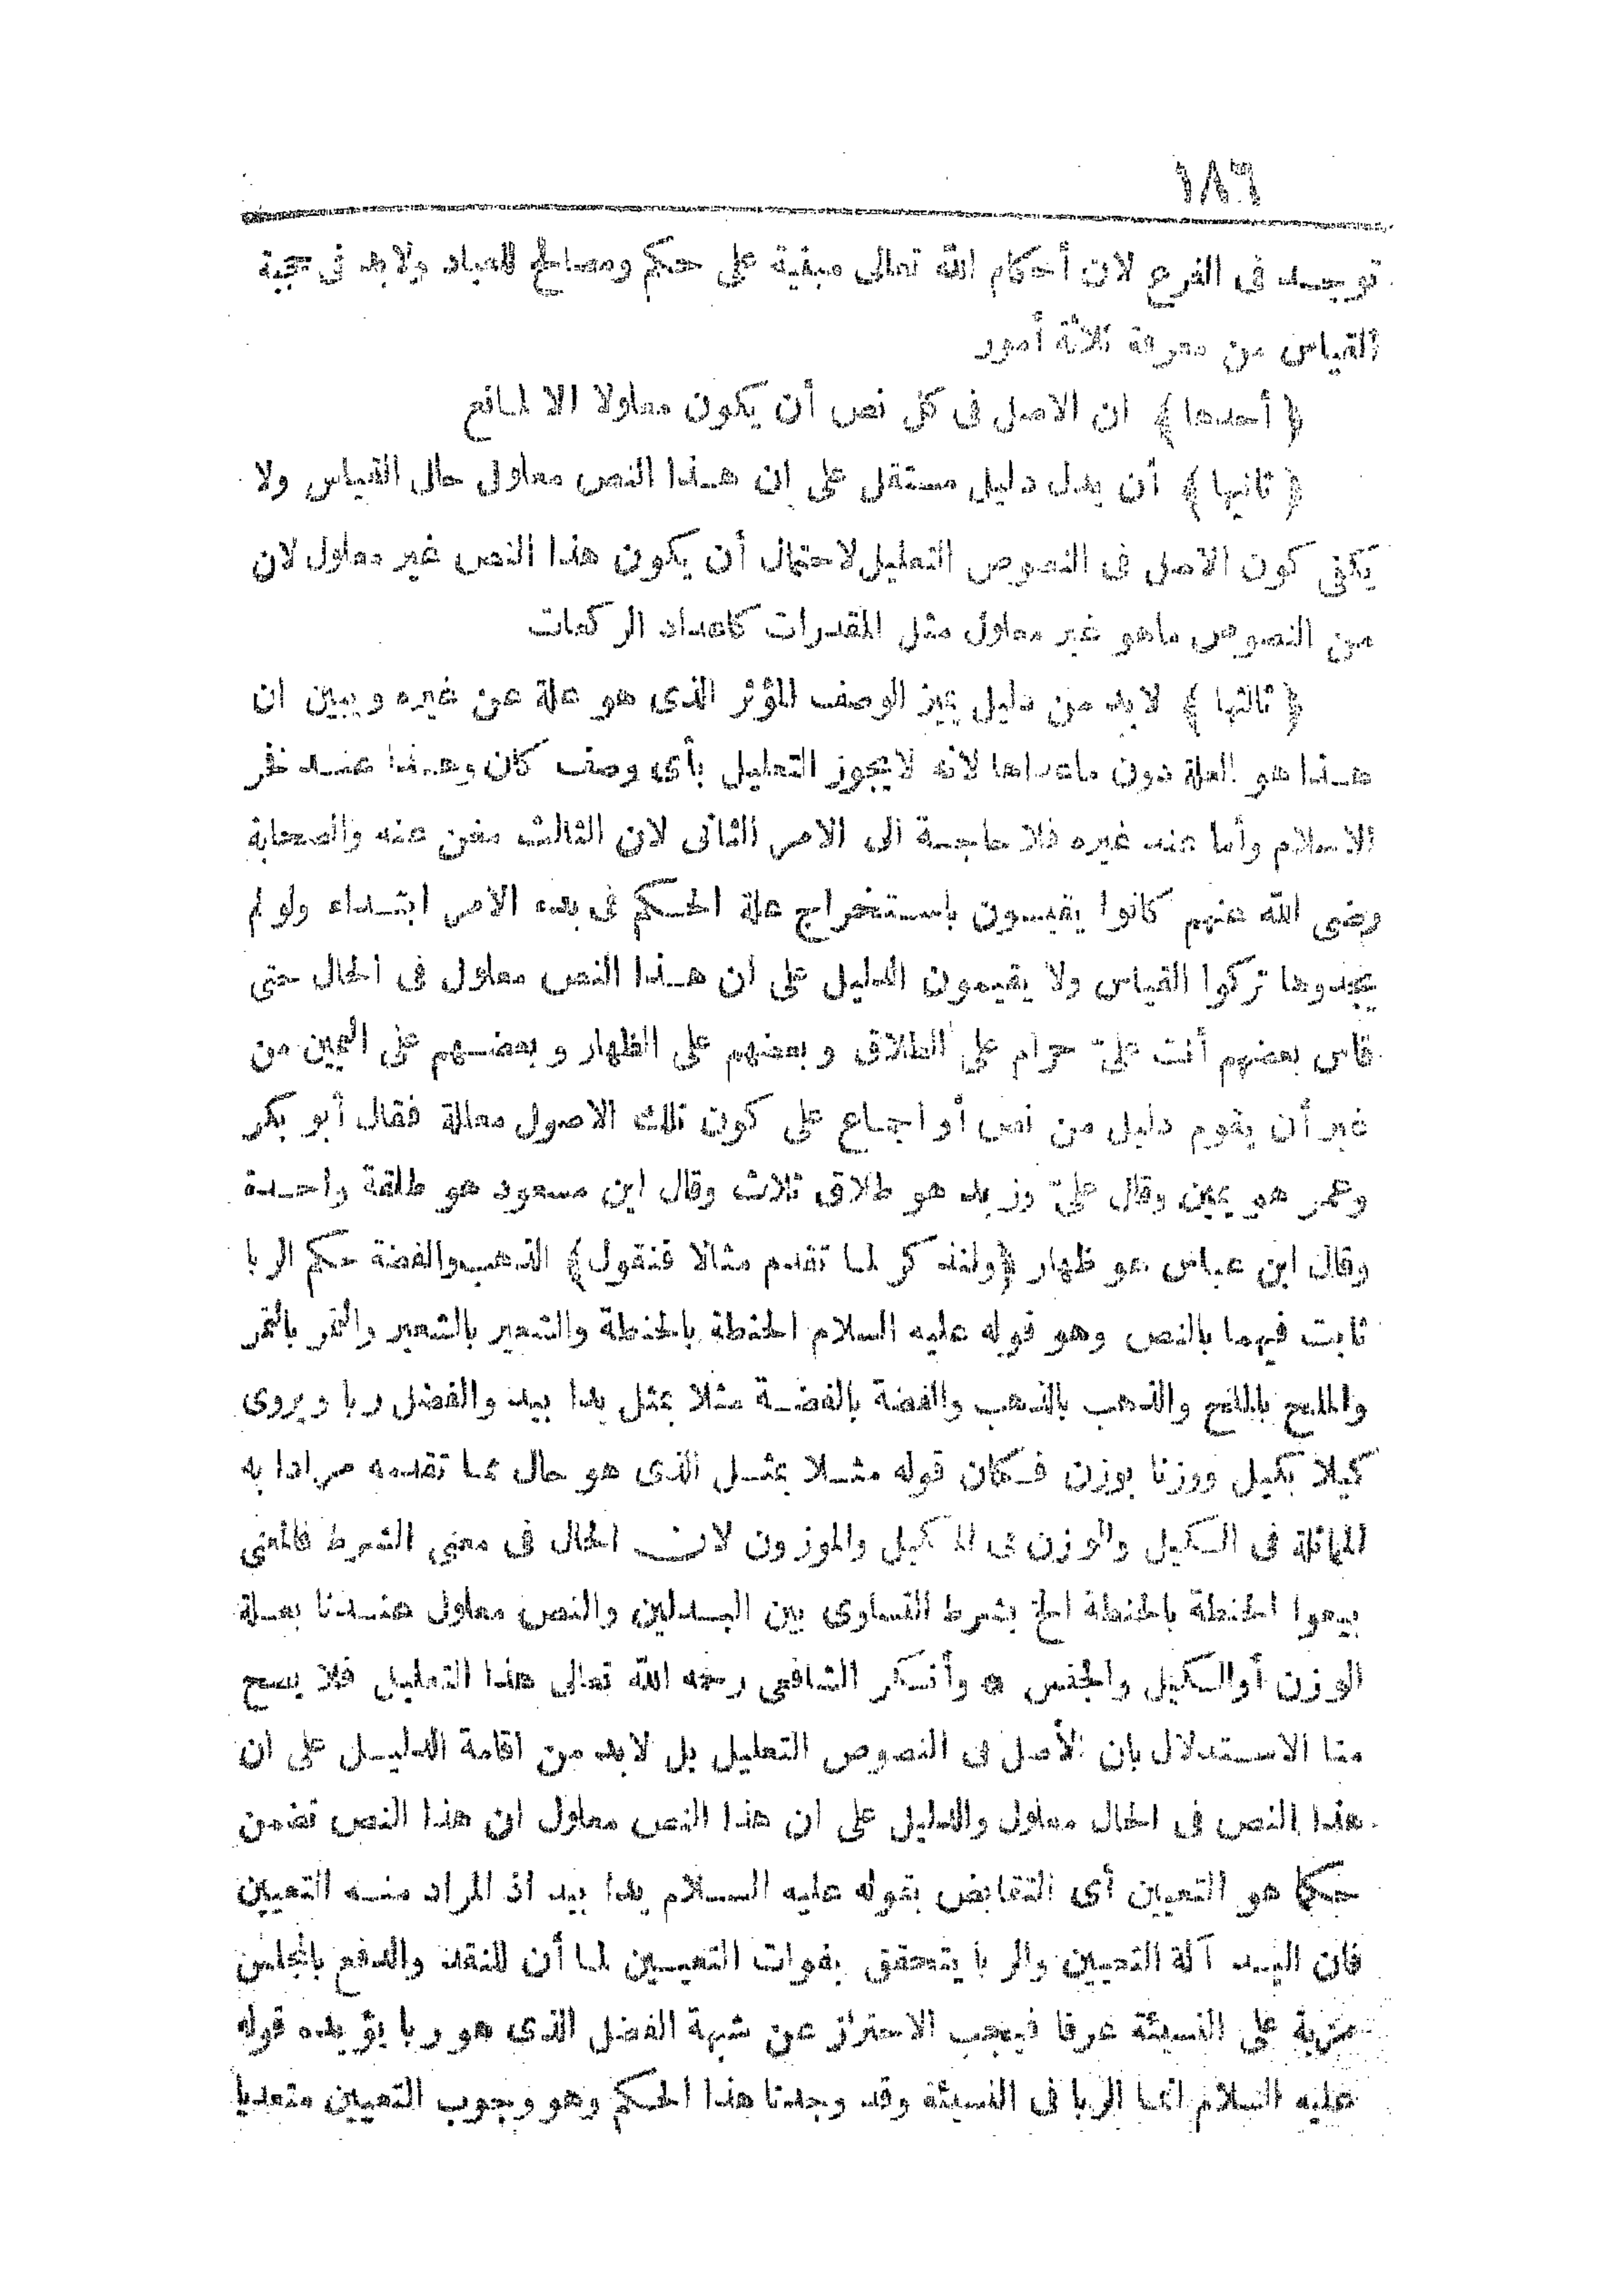 ١٨٦
توجد في الفرع لان أحكام الله تعالى مبنية على حكم ومصالح للعباد ولابد في حجية
القياس من معرفة ثلاثة أمور
﴿أحدها﴾ ان الاصل فى كل نص أن يكون معلولا الا لمانع
﴿ثانيها﴾ أن يدل دليل مستقل على ان هذا النص معلول حال القياس ولا
يكفى كون الاصل فى النصوص التعليل لاحتمال أن يكون هذا النص غير معلول لان
من النصوص ماهو غير معلول مثل المقدرات كاعداد الركعات
﴿ثالثها﴾ لابد من دليل يميز الوصف المؤثر الذى هو علة عن غيره ويبين ان
هذا هو العلة دون ماعداها لانه لايجوز التعليل بأى وصف كان وهذا عند فخر
الاسلام وأما عند غيره فلا حاجة الى الامر الثانى لان الثالث مغن عنه والصحابة
رضى الله عنهم كانوا يقيسون باستخراج علة الحكم فى بدء الامر ابتداء ولو لم
يجدوها تركوا القياس ولا يقيمون الدليل على ان هذا النص معلول فى الحال حتى
قاس بعضهم أنت علىّ حرام على الطلاق وبعضهم على الظهار وبعضهم على اليمين من
غير أن يقوم دليل من نص أو اجماع على كون تلك الاصول معللة فقال أبو بكر
وعمر هو يمين وقال علىّ وزيد هو طلاق ثلاث وقال ابن مسعود هو طلقة واحدة
وقال ابن عباس هو ظهار ﴿ولنذكر لما تقدم مثالا فنقول﴾ الذهب والفضة حكم الربا
ثابت فيهما بالنص وهو قوله عليه السلام الحنطة بالحنطة والشعير بالشعير والتمر بالتمر
والملح بالملح والذهب بالذهب والفضة بالفضة مثلا بمثل يدا بيد والفضل ربا ويروى
كيلا بكيل ووزنا بوزن فكان قوله مثلا بمثل الذى هو حال عما تقدمه مرادا به
المماثلة فى الكيل والوزن فى المكيل والموزون لان الحال فى معنى الشرط فالمعنى
بيعوا الحنطة بالحنطة الخ بشرط التساوى بين البدلين والنص معلول عندنا بعلة
الوزن أوالكيل والجنس * وأنكر الشافعى رحمه الله تعالى هذا التعليل فلا يصح
منا الاستدلال بان الأصل فى النصوص التعليل بل لابد من اقامة الدليل على ان
هذا النص فى الحال معلول والدليل على ان هذا النص معلول ان هذا النص تضمن
حكما هو التعيين أى التقابض بقوله عليه السلام يدا بيد اذ المراد منه التعيين
فان اليد آلة التعيين والربا يتحقق بفوات التعيين لما أن للنقد والدفع بالمجلس
مزية على النسيئة عرفا فيجب الاحتراز عن شبهة الفضل الذى هو ربا يؤيده قوله
عليه السلام انما الربا فى النسيئة وقد وجدنا هذا الحكم وهو وجوب التعيين متعديا